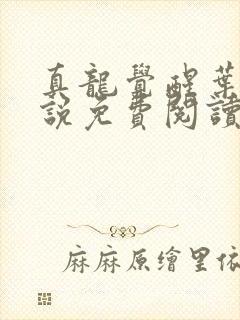 真龍覺醒葉
說免費閱讀
麻麻原繪里依